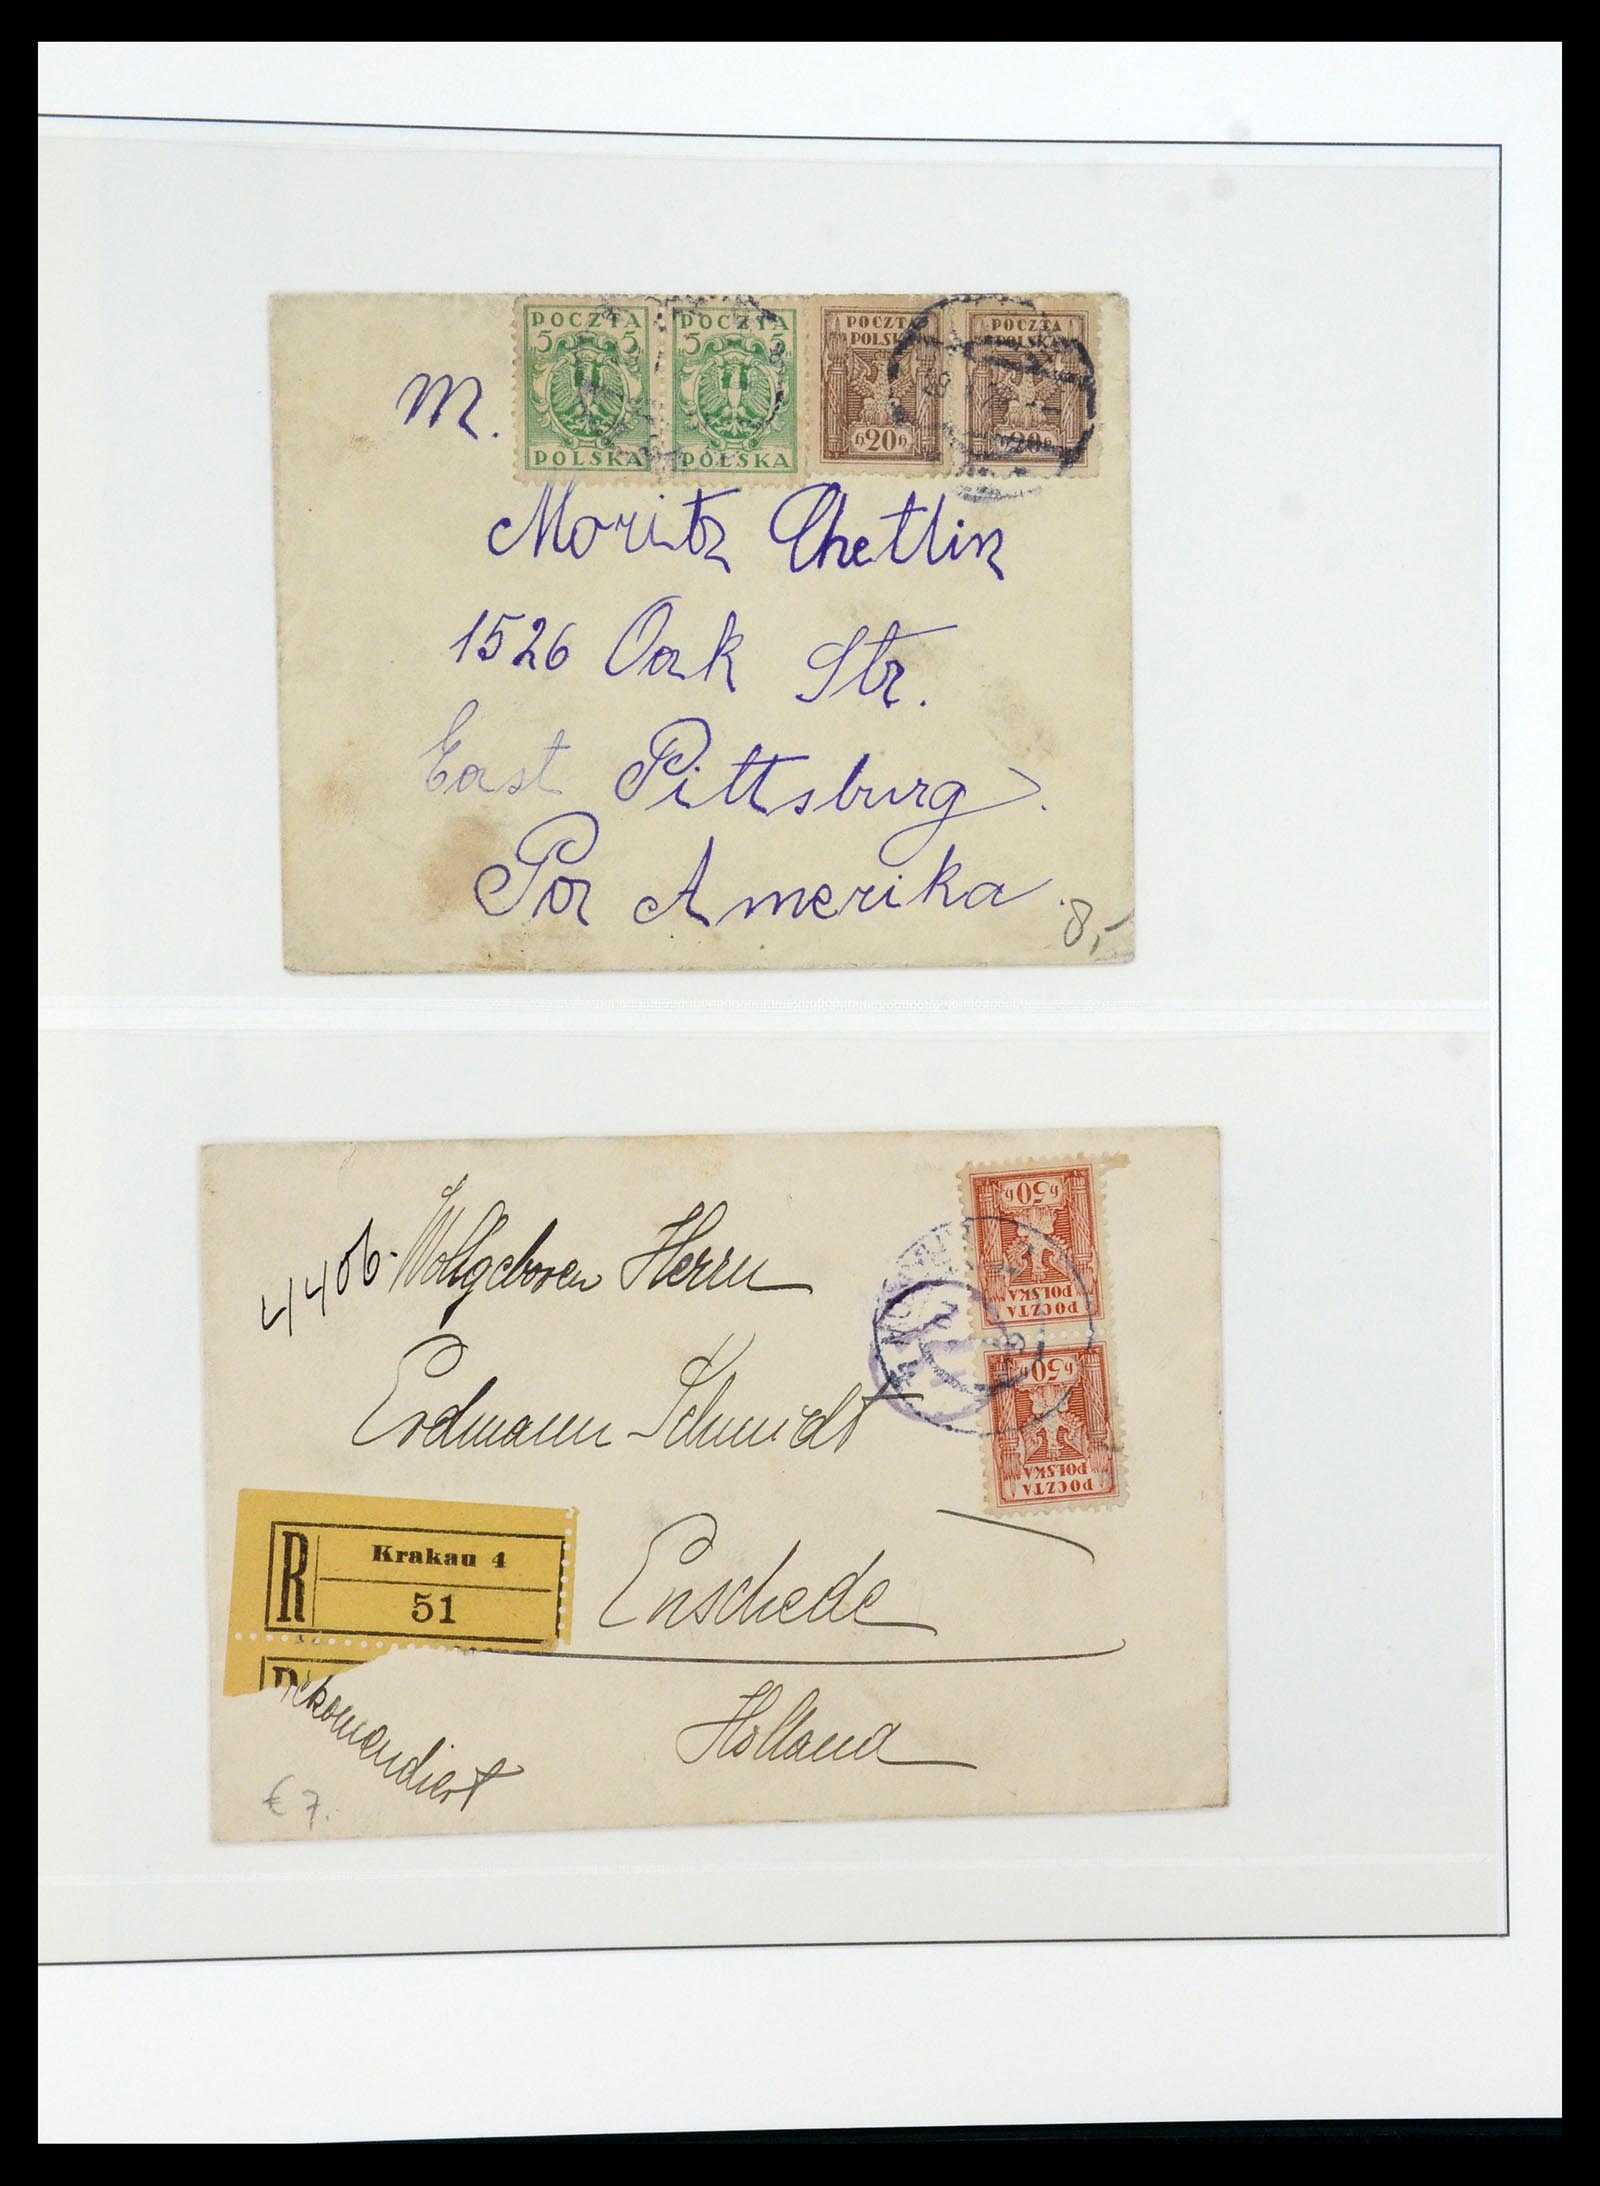 POCZTA
5 5
POLSKA
POCZTA
5 5
POLSKA
POCZTA
POLSKA
h20h
POCZTA
POLSKA
h20h
M.
Moritz Chetlin
1526 Oak Str.
East Pittsburg.
Por Amerika.
8,-
4406.
Wohlgeboren Herrn
Erdmann Schmidt
Enschede
Holland
h50h
POCZTA
POLSKA
h50h
POCZTA
POLSKA
R
Krakau 4
51
Rekomendiert
€ 7.